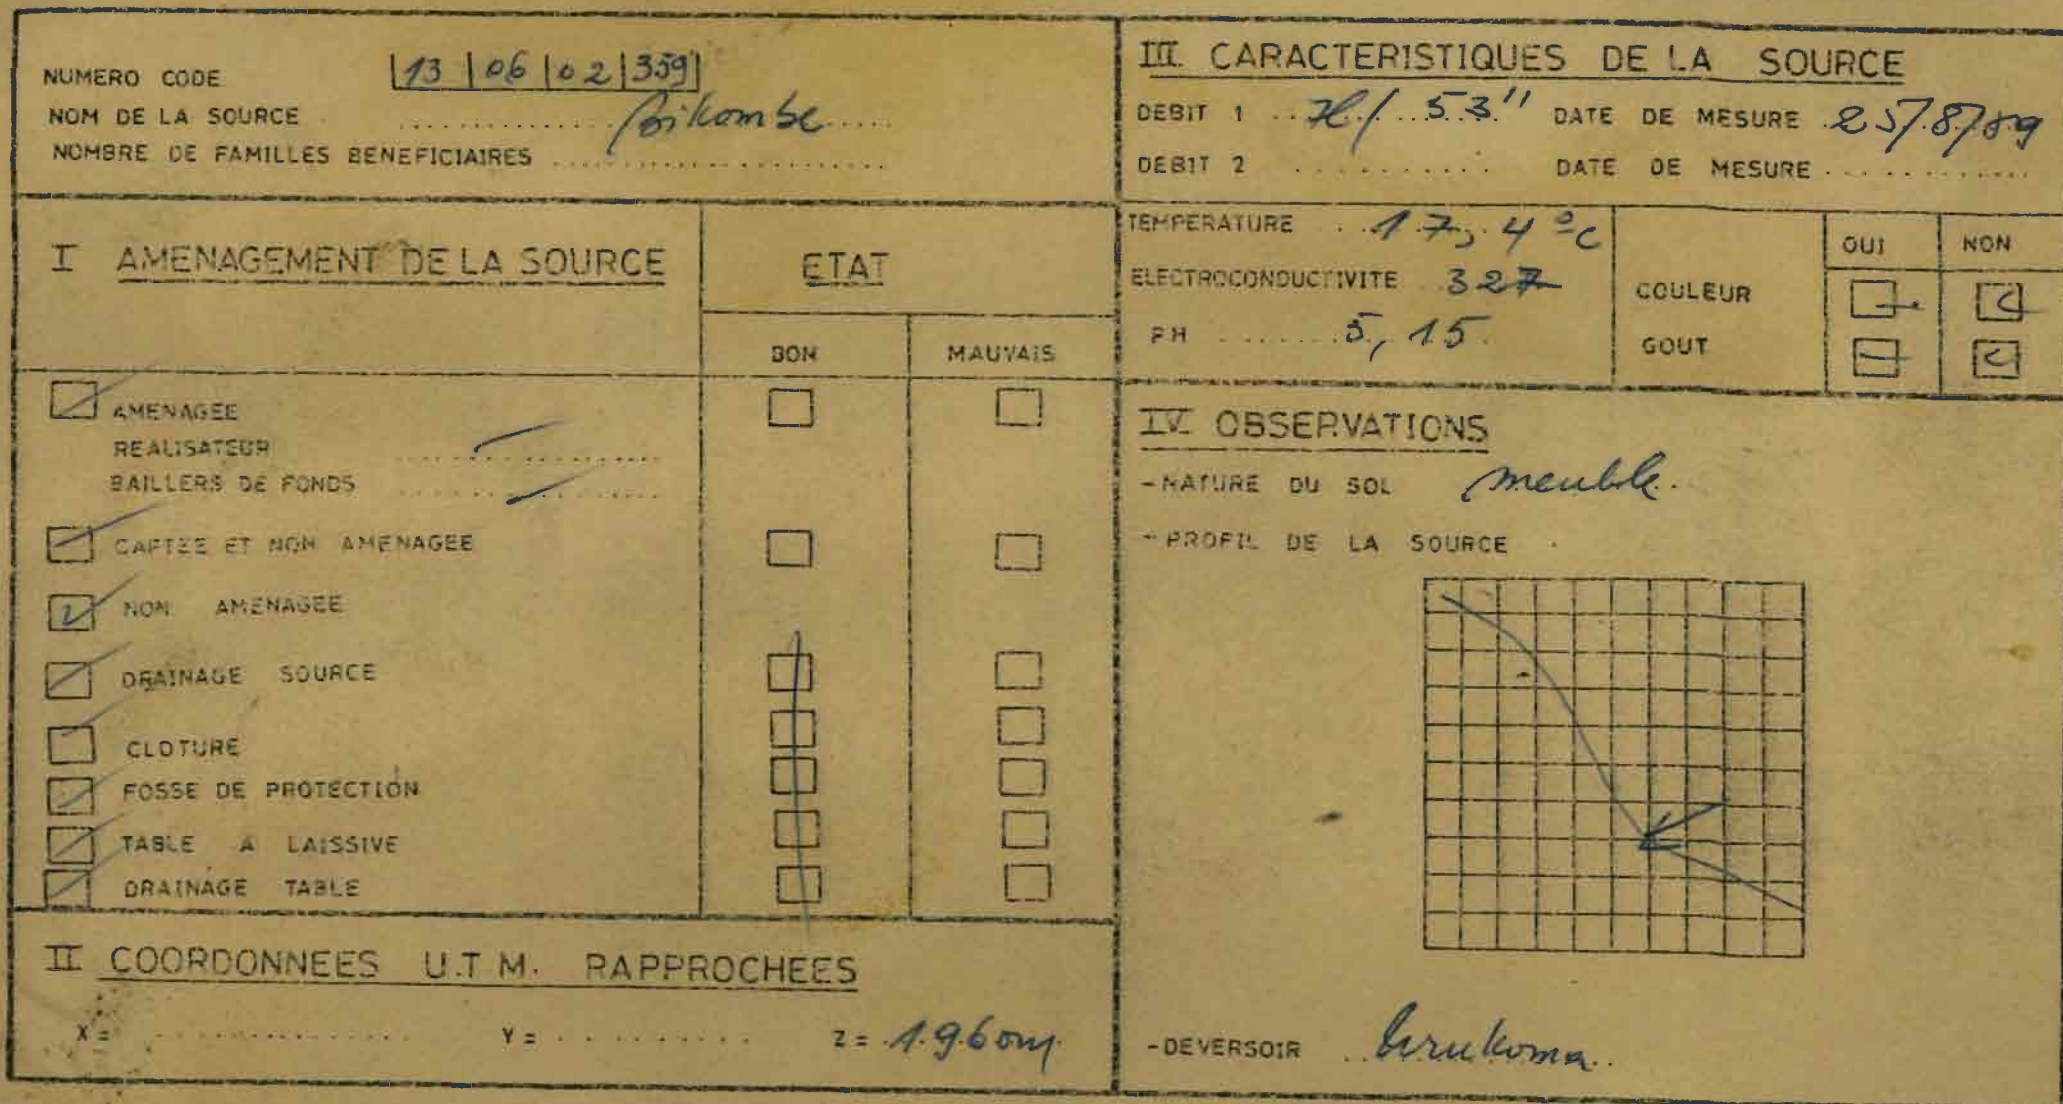 NUMERO CODE |13|06|02|359|
NOM DE LA SOURCE . .............. Bikombe.....
NOMBRE DE FAMILLES BENEFICIAIRES .......................
I AMENAGEMENT DE LA SOURCE
ETAT
BON MAUVAIS
AMENAGEE
REALISATEUR ....................
BAILLERS DE FONDS ....................
CAPTEE ET NON AMENAGEE
NON AMENAGEE
DRAINAGE SOURCE
CLOTURE
FOSSE DE PROTECTION
TABLE A LAISSIVE
DRAINAGE TABLE
II COORDONNEES U.T.M. RAPPROCHEES
X = ................ Y = .......... Z = 1.960m
III CARACTERISTIQUES DE LA SOURCE
DEBIT 1 .. 7l/ 53'' DATE DE MESURE 25/8/89
DEBIT 2 .......... DATE DE MESURE ............
TEMPERATURE .. 17,4 °C
ELECTROCONDUCTIVITE 327
PH ....... 5,15
OUI NON
COULEUR
GOUT
IV OBSERVATIONS
-NATURE DU SOL meuble.
-PROFIL DE LA SOURCE .
-DEVERSOIR ..